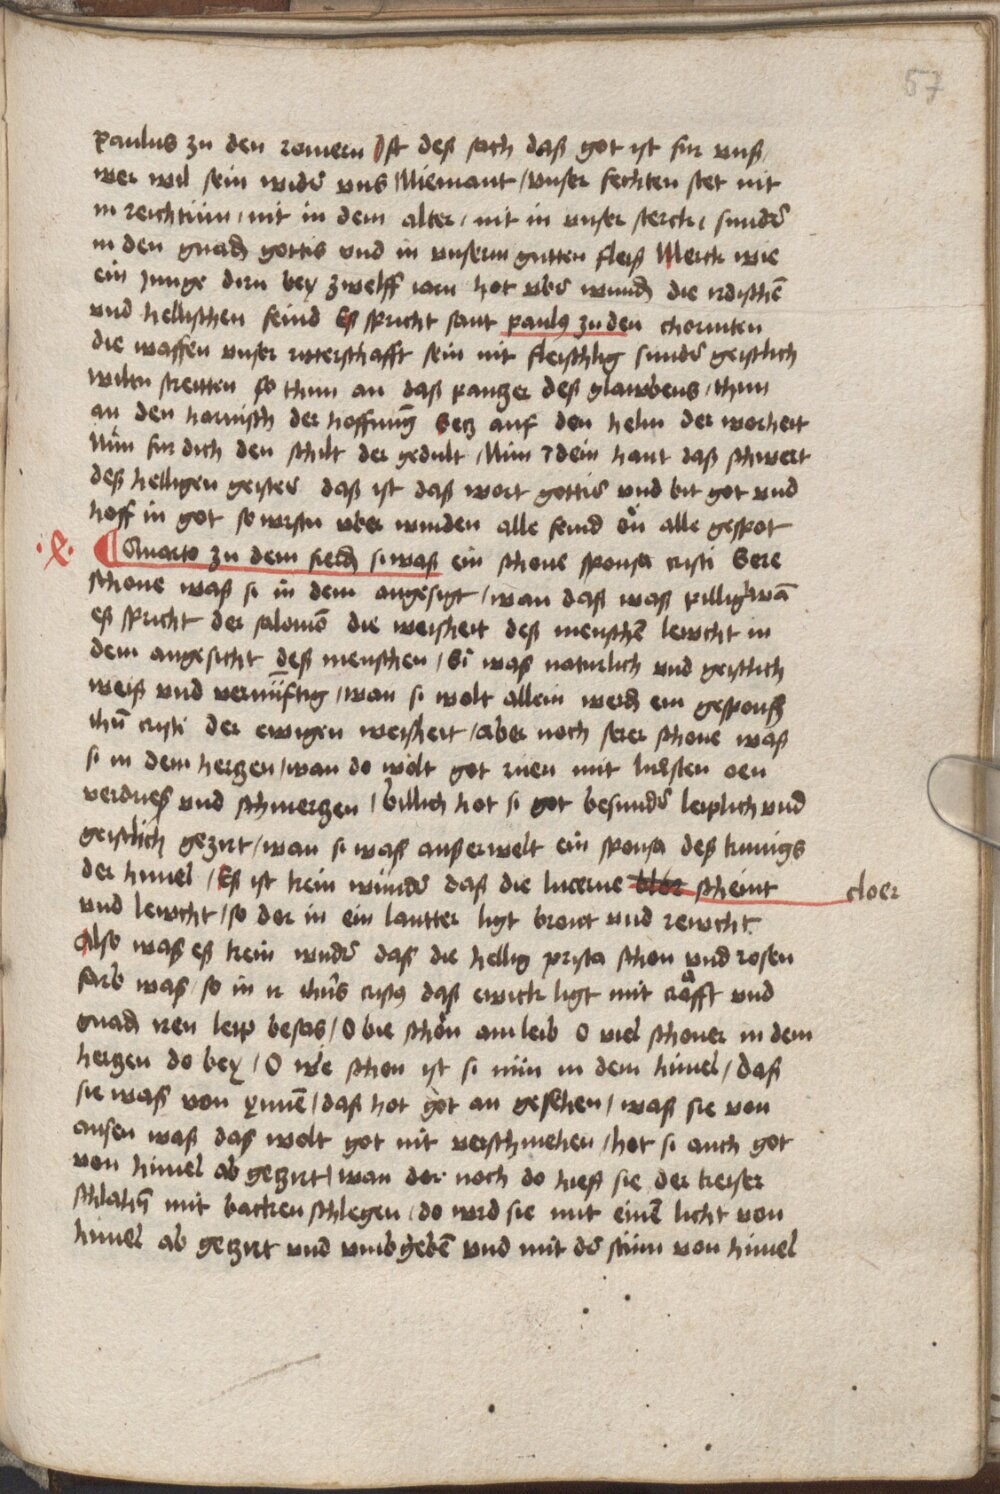 57
Paulus zu den romern Ist deß sach daß got ist fur vnß
wer wil sein wider vns / Niemant / vnser fechten stet nit
in reichtum / nit in dem alter / nit in vnser sterck / sunder
in den gnad gottis vnd in vnserm gutten fleiß Merck wie
ein Junge dirn bey zwelff iarn hot vber wund die irdischē
vnd hellischen feind Eß spricht sant paulꝰ zu den chorinten
die waffen vnser ritterschafft sein nit fleischlig sunder geistlich
streitten so thun an daß panczer deß glawbens / thun
an den harnisch der hoffnung Secz auf den helm der worheit
Nim fur dich den schilt der gedult / Nim dein hant daß schwert
deß helligen geistes daß ist daß wort gottis vnd bit got vnd
hoff in got so wirstu vber winden alle feind on alle gespot
Quarto zu dem fierd si waß ein schone sponsa cristi Sere
schone waß si in dem angesigt / wan daß waß pillig wā
eß spricht der salomō die weisheit deß menschē lewcht in
dem angesicht deß menschen / Si waß naturlich vnd geistlich
weiß vnd vernufftig / wan si wolt allein werd ein gesponß
ihū cristi der ewigen weisheit / aber noch serer schone waß
si in dem herczen / wan do wolt got ruen mit lusten oen
verdries vnd schmerczen / billich hot si got besunder leiplich vnd
geistlich gezirt / wan si waß außerwelt ein sponsa deß kunigs
der himel / Eß ist kein wunder daß die lucerne scheint cloer
vnd lewcht / so dor in ein lautter ligt brent vnd rewcht
Also waß eß kein wnder daß die hellig prista schon vnd rosen
farb waß / so in ir ihūs cristꝰ daß ewick ligt mit crafft vnd
gnad iren leip besas / O bie schon am leib O viel schoner in dem
herczen do bey / O wie schon ist si nun in dem himel / daß
sie waß von ynnē / daß hot got an gesehen / waß sie von
ausen waß daß wolt got nit verschmehen / hot si auch got
von himel ab geczirt / wan dor noch do hieß sie der keiser
schlahn mit backen schlegen / do wrd sie mit einē licht von
himel ab geczirt vnd vmb gebē vnd mit der stim von himel